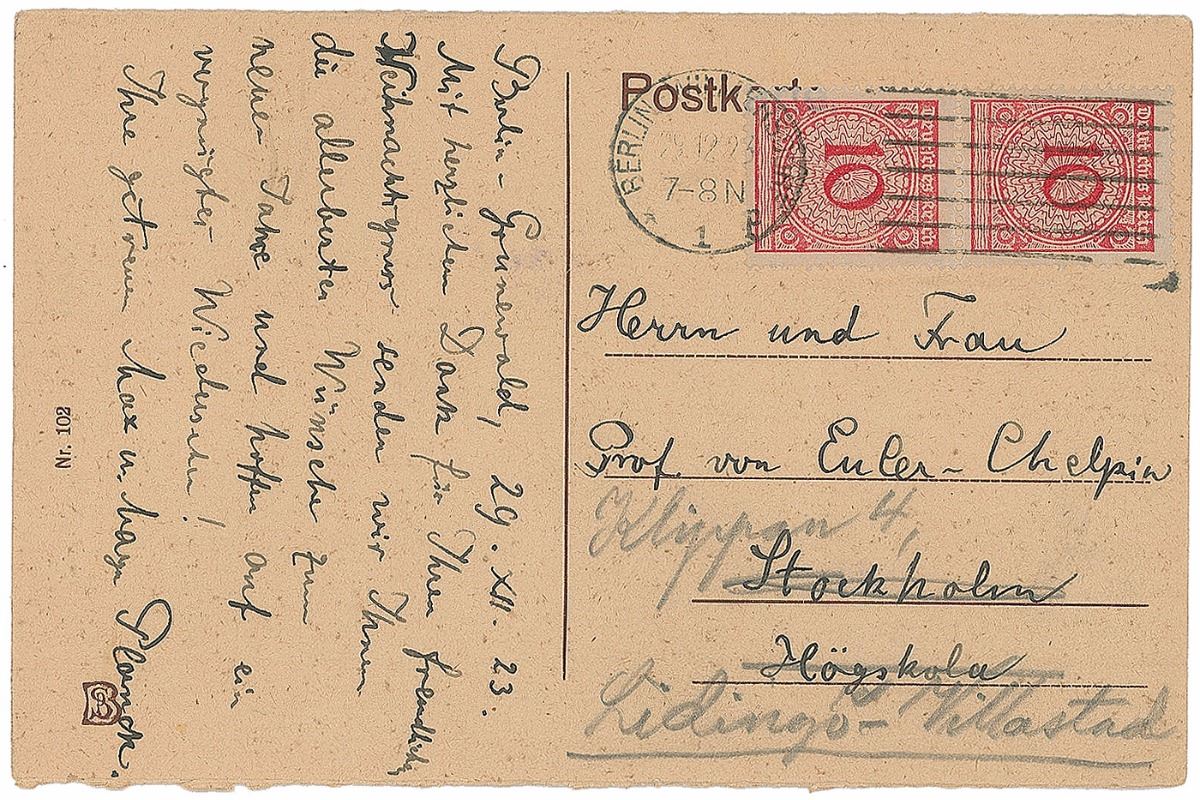 Berlin-Grunewald, 29. XII. 23.
Mit herzlichem Dank für Ihren freundlichen
Weihnachtsgruss senden wir Ihnen
die allerbesten Wünsche zum
neuen Jahre und hoffen auf ein
vergnügtes Wiedersehen!
Ihre getreuen Max u. Marga Planck.
Nr. 102
Postkarte
BERLIN
29.12.23
7-8 N
1
10
10
Herrn und Frau
Prof. von Euler-Chelpin
Klippan 4,
Stockholm
Högskola
Lidingö-Villastad